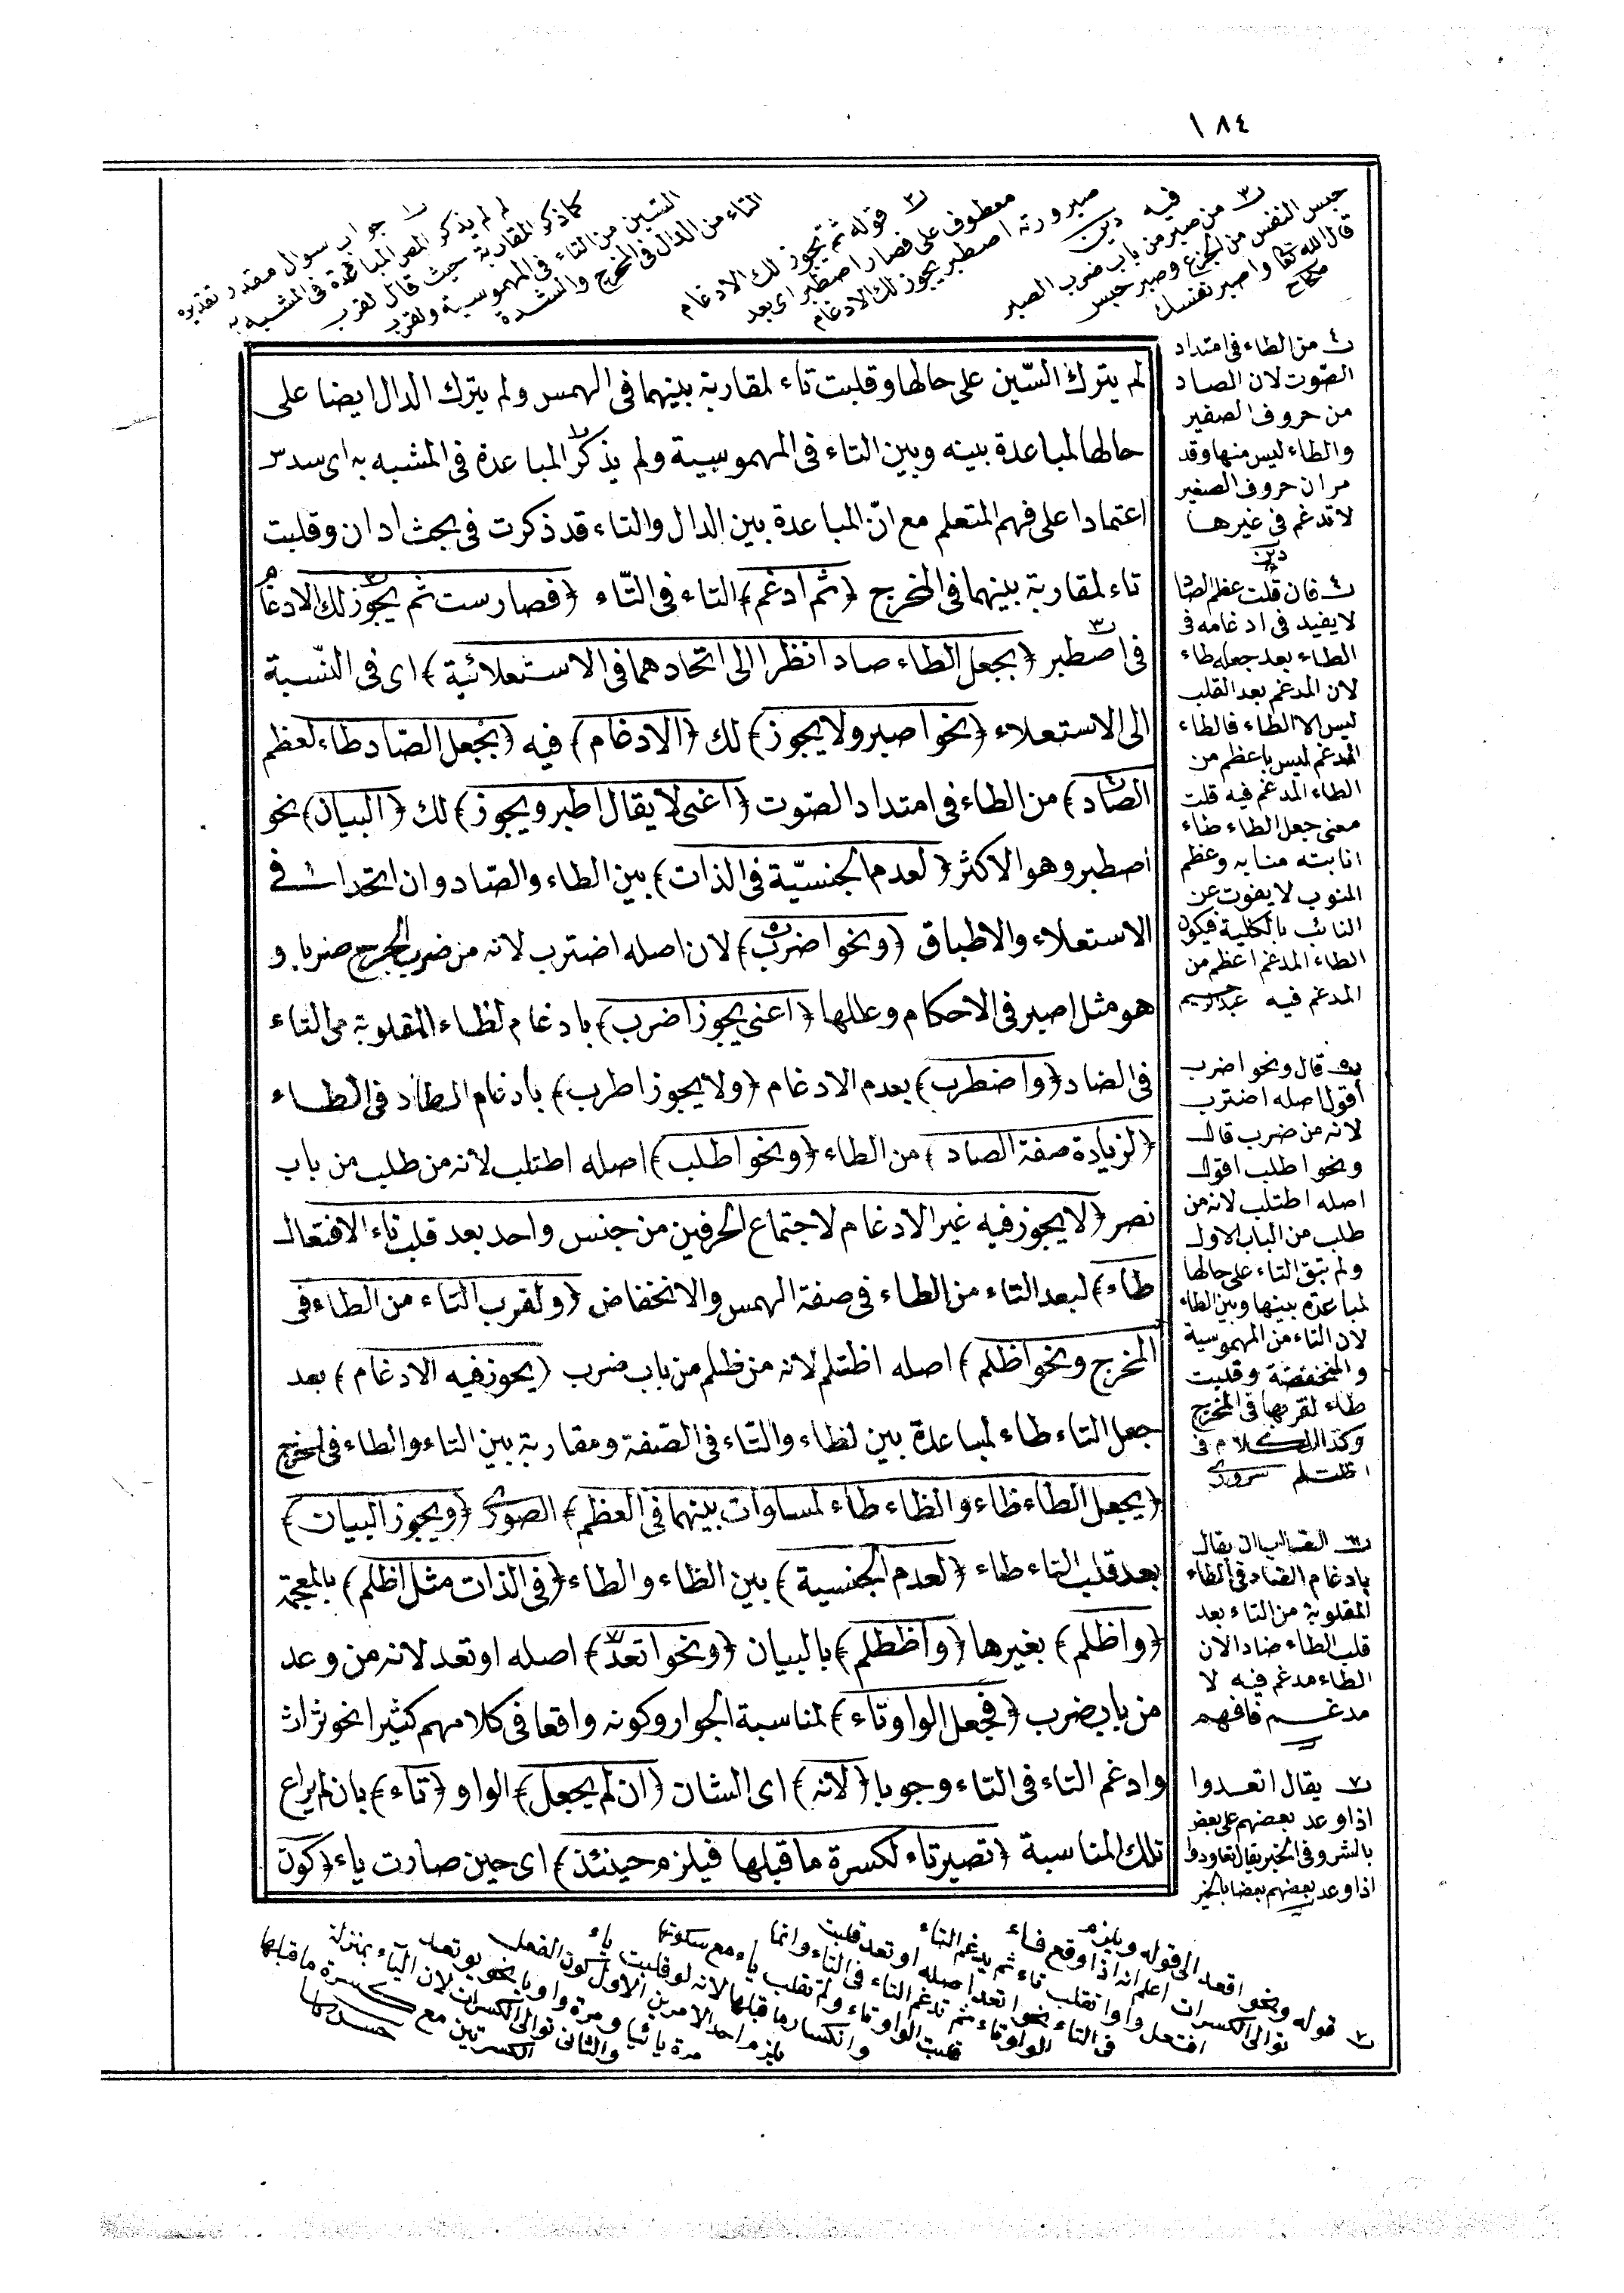 ١٨٤
١ جواب سوال مقدر تقديره
لم لم يذكر المص المباعدة فى المشبه به
كما ذكر المقاربة حيث قال لقرب
السين من التاء فى المهموسية ولقرب
التاء من الدال فى المخرج والشدة
٢ قوله ثم يجوز لك الادغام
معطوف على فصار اصطبر اى بعد
صيرورته اصطبر يجوز لك الادغام
فيه
٣ من صبر من باب ضرب الصبر
حبس النفس من الجزع وصبر حبس
قال الله تعا واصبر نفسك
لم يترك السّين على حالها وقلبت تاء لمقاربة بينهما فى الهمس ولم يترك الدال ايضا على
حالها لمباعدة بينه وبين التاء فى المهموسية ولم يذكر المباعدة فى المشبه به اى سدس
اعتمادا على فهم المتعلم مع انّ المباعدة بين الدال والتاء قد ذكرت فى بحث ادان وقلبت
تاء لمقاربة بينهما فى المخرج ﴿ثم ادغم﴾ التاء فى التّاء ﴿فصار ست ثم يجوز لك الادغام
فى اصطبر ﴿بجعل الطاء صادا نظرا الى اتحادهما فى الاستعلائية﴾ اى فى النّسبة
الى الاستعلاء ﴿نحو اصبر ولا يجوز﴾ لك ﴿الادغام﴾ فيه ﴿بجعل الصّاد طاء لعظم
الصّاد﴾ من الطاء فى امتداد الصّوت ﴿اعنى لا يقال اطبر ويجوز﴾ لك ﴿البيان﴾ نحو
اصطبر وهو الاكثر ﴿لعدم الجنسيّة فى الذات﴾ بين الطاء والصّاد وان اتحدا فى
الاستعلاء والاطباق ﴿ونحو اضرب﴾ لان اصله اضترب لانه من ضرب الجرح ضربا و
هو مثل اصبر فى الاحكام وعللها ﴿اعنى يجوز اضرب﴾ بادغام لطاء المقلوبة من التاء
فى الضاد ﴿واضطرب﴾ بعدم الادغام ﴿ولا يجوز اطرب﴾ بادغام الضاد فى الطاء
﴿لزيادة صفة الضاد﴾ من الطاء ﴿ونحو اطلب﴾ اصله اطتلب لانه من طلب من باب
نصر ﴿لا يجوز فيه غير الادغام لاجتماع الحرفين من جنس واحد بعد قلب تاء الافتعال
طاء﴾ لبعد التاء من الطاء فى صفة الهمس والانخفاض ﴿ولقرب التاء من الطاء فى
المخرج ونحو اظلم﴾ اصله اظتلم لانه من ظلم من باب ضرب ﴿يجوز فيه الادغام﴾ بعد
جعل التاء طاء لمباعدة بين لظاء والتّاء فى الصّفة ومقاربة بين التاء والطاء فى المخرج
﴿بجعل الطاء ظاء والظاء طاء لمساوات بينهما فى العظم﴾ الصورى ﴿ويجوز البيان﴾
بعد قلب التاء طاء ﴿لعدم الجنسية﴾ بين الظاء والطاء ﴿فى الذات مثل اظلم﴾ بالمعجمة
﴿واطلم﴾ بغيرها ﴿واظطلم﴾ بالبيان ﴿ونحو اتعد﴾ اصله اوتعد لانه من وعد
من باب ضرب ﴿فجعل الواو تاء﴾ لمناسبة الجوار وكونه واقعا فى كلامهم كثيرا نحو تراث
وادغم التاء فى التاء وجوبا ﴿لانه﴾ اى الشان ﴿ان لم يجعل﴾ الواو ﴿تاء﴾ بان لم يراع
تلك المناسبة ﴿تصير ياء لكسرة ما قبلها فيلزم حينئذ﴾ اى حين صارت ياء ﴿كون
٤ من الطاء فى امتداد
الصّوت لان الصاد
من حروف الصفير
والطاء ليس منها وقد
مر ان حروف الصفير
لا تدغم فى غيرها
٤ فان قلت عظم الصا
لا يفيد فى ادغامه فى
الطاء بعد جعله طاء
لان المدغم بعد القلب
ليس الا الطاء فالطاء
المدغم ليس باعظم من
الطاء المدغم فيه قلت
معنى جعل الطاء طاء
انابته منابه وعظم
المنوب لا يفوت عن
النائب بالكلية فيكون
الطاء المدغم اعظم من
المدغم فيه
٥ قال ونحو اضرب
أقول اصله اضترب
لانه من ضرب قال
ونحو اطلب اقول
اصله اطتلب لانه من
طلب من الباب الاول
ولم تبق التاء على حالها
لمباعدة بينها وبين الطاء
لان التاء من المهموسية
والمنخفضة وقلبت
طاء لقربها فى المخرج
وكذا الكلام فى
اظتلم سرورى
٦ الصّواب ان يقال
بادغام الضاد فى الطاء
المقلوبة من التاء بعد
قلب الطاء ضاد الان
الطاء مدغم فيه لا
مدغم فافهم
٧ يقال اتعدوا
اذا وعد بعضهم على بعض
بالشر وفى الخير يقال تعاودوا
اذا وعد بعضهم بعضا بالخير
٢ قوله ونحو اتعد الى قوله ويلزم
توالى الكسرات اعلم انه اذا وقع فاء
افتعل واوا تقلب تاء ثم يدغم التاء
فى التاء نحو اتعد اصله اوتعد قلبت
الواو تاء ثم تدغم التاء فى التاء وانما
قلبت الواو تاء ولم تقلب ياء مع سكونها
وانكسار ما قبلها لانه لو قلبت ياء
يلزم احد الامرين الاول كون الفعل
مرة يائيا ومرة واويا نحو يوتعد
والثانى توالى الكسرات لان الياء بمنزلة
الكسرتين مع كسرة ما قبلها